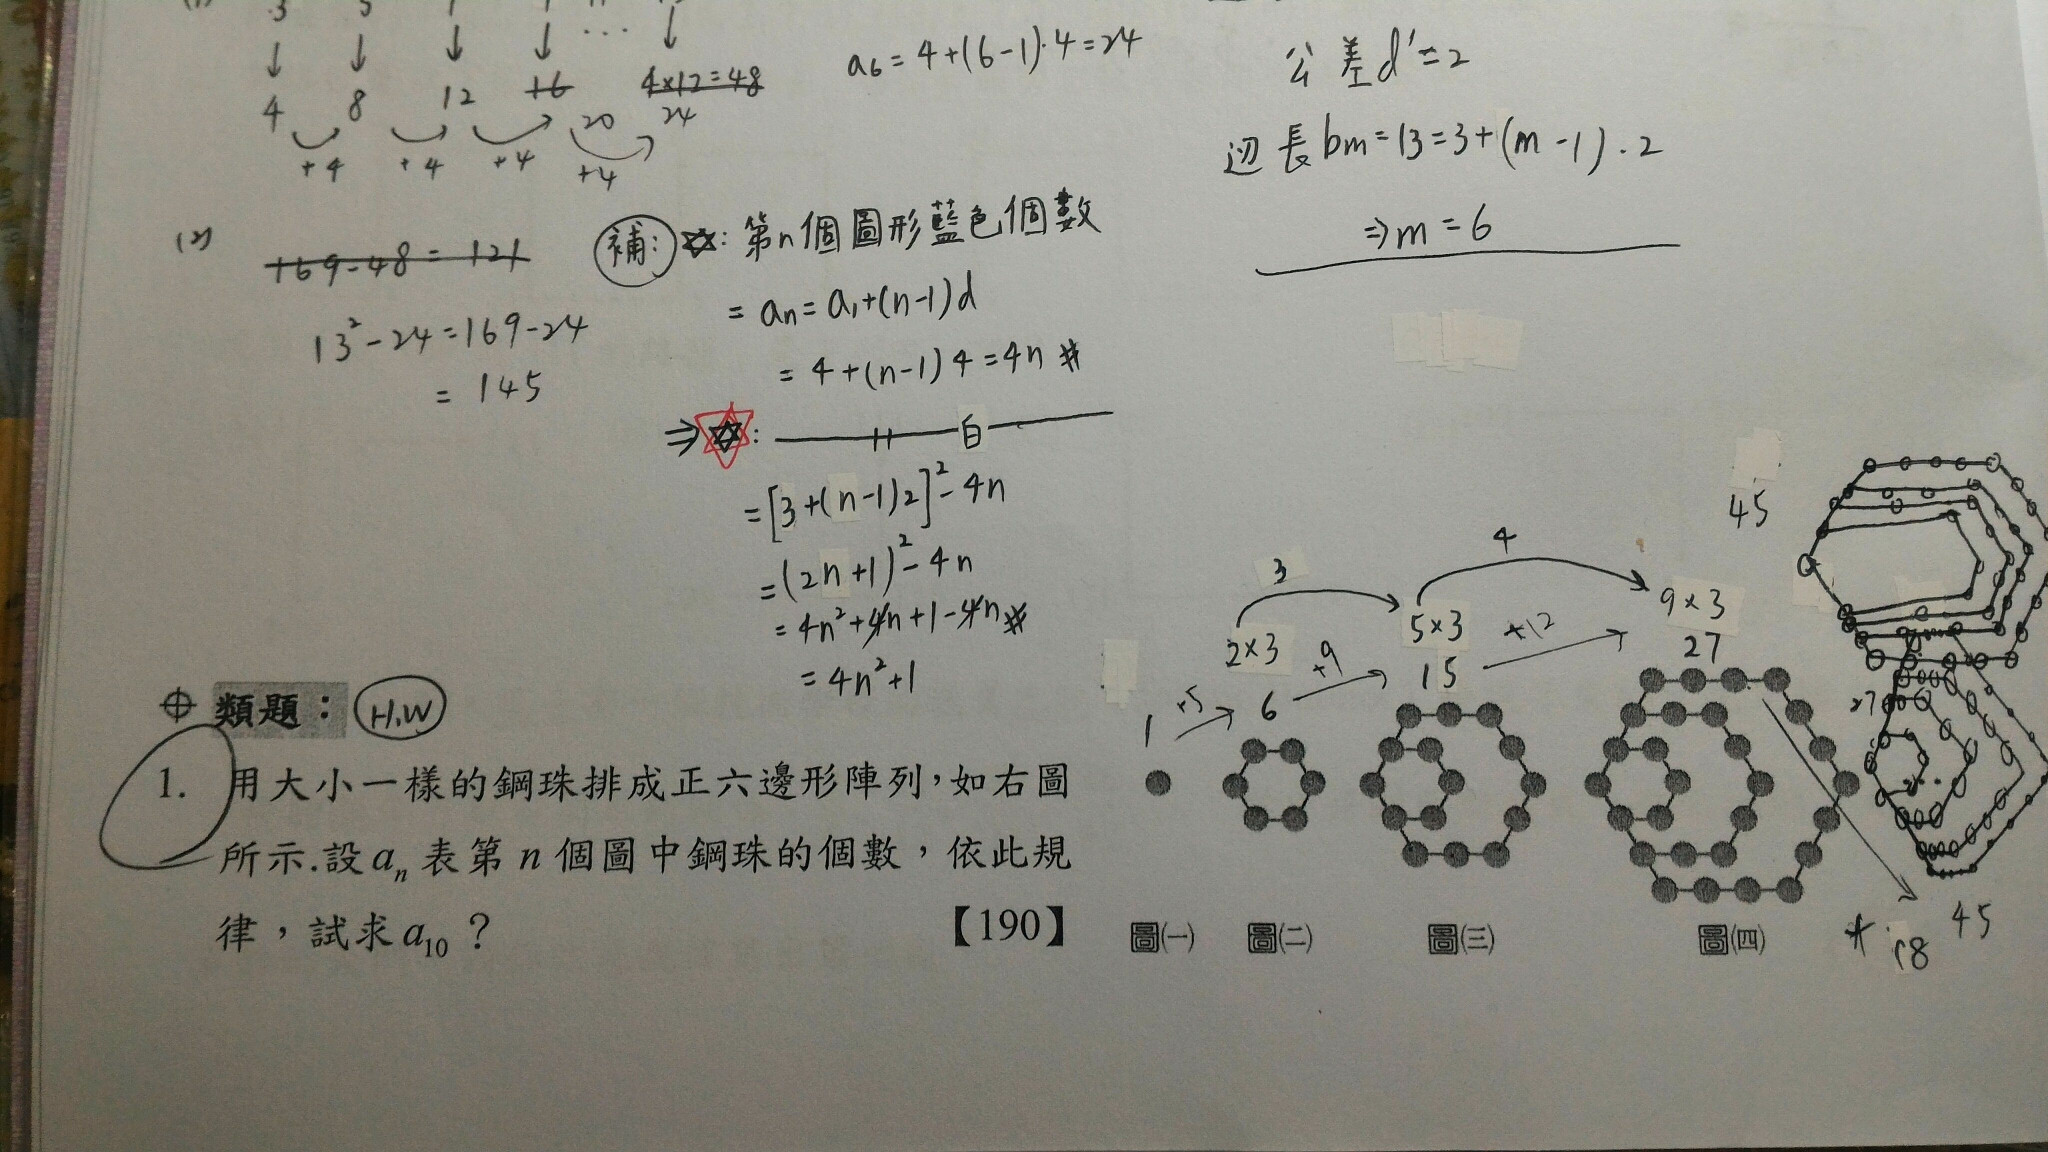 (1)
3 5 7 9 11 13
↓ ↓ ↓ ↓ ... ↓
4 8 12 16 4×12=48
20 24
+4 +4 +4 +4
a₆=4+(6-1)·4=24
公差d'=2
边長bm=13=3+(m-1).2
⇒m=6
(2)
169-48=121
13²-24=169-24
=145
補: ✡: 第n個圖形藍色個數
= an=a₁+(n-1)d
= 4+(n-1)4=4n #
⇒✡: 〃 白
=[3+(n-1)2]²-4n
=(2n+1)²-4n
=4n²+4n+1-4n #
=4n²+1
類題: H.W
1. 用大小一樣的鋼珠排成正六邊形陣列,如右圖
所示.設aₙ表第n個圖中鋼珠的個數,依此規
律,試求a₁₀?
【190】
3 4
2×3 5×3 9×3
1 +5 6 +9 15 +12 27
45
27
圖㈠ 圖㈡ 圖㈢ 圖㈣
18 45